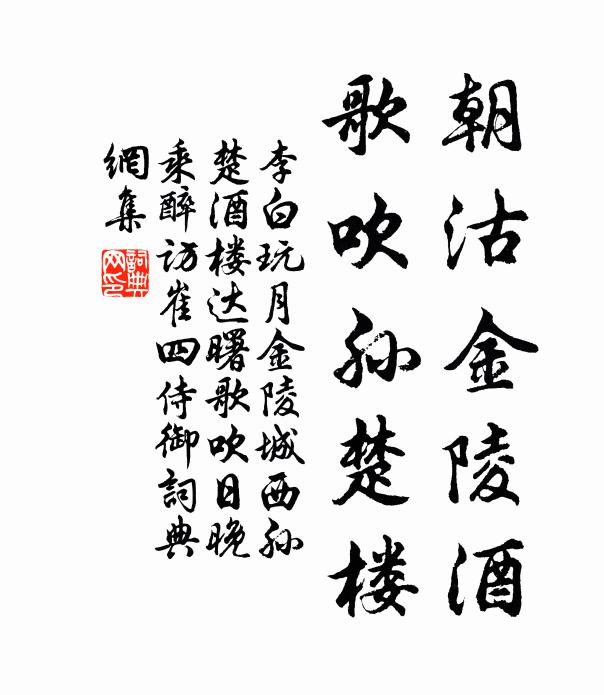 朝沽金陵酒
歌吹孙楚楼
李白玩月金陵城西孙
楚酒楼达曙歌吹日晚
乘醉访崔四侍御詞典
網集
詞典
网印